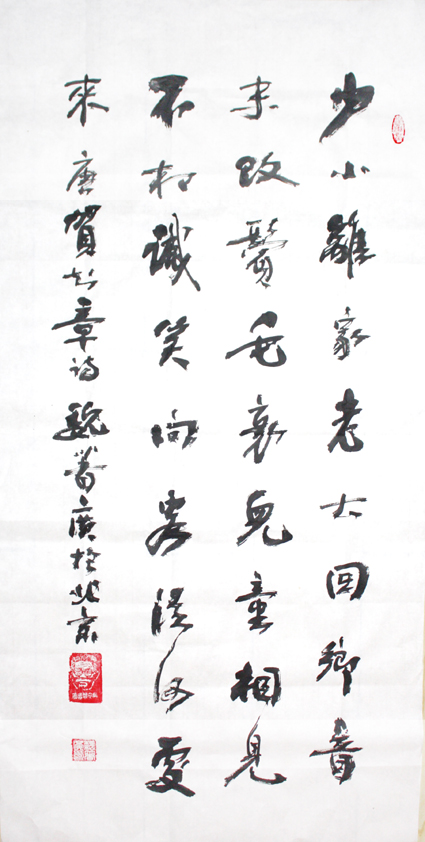 少小離家老大回鄉音
未改鬢毛衰兒童相見
不相識笑问客從何處
來唐賀知章诗魏蕃廣於北京